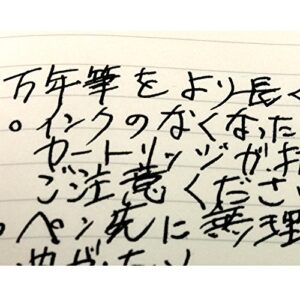 万年筆をより長く
。インクのなくなった
カートリッジが
ご注意くださ
。ペン先に無理